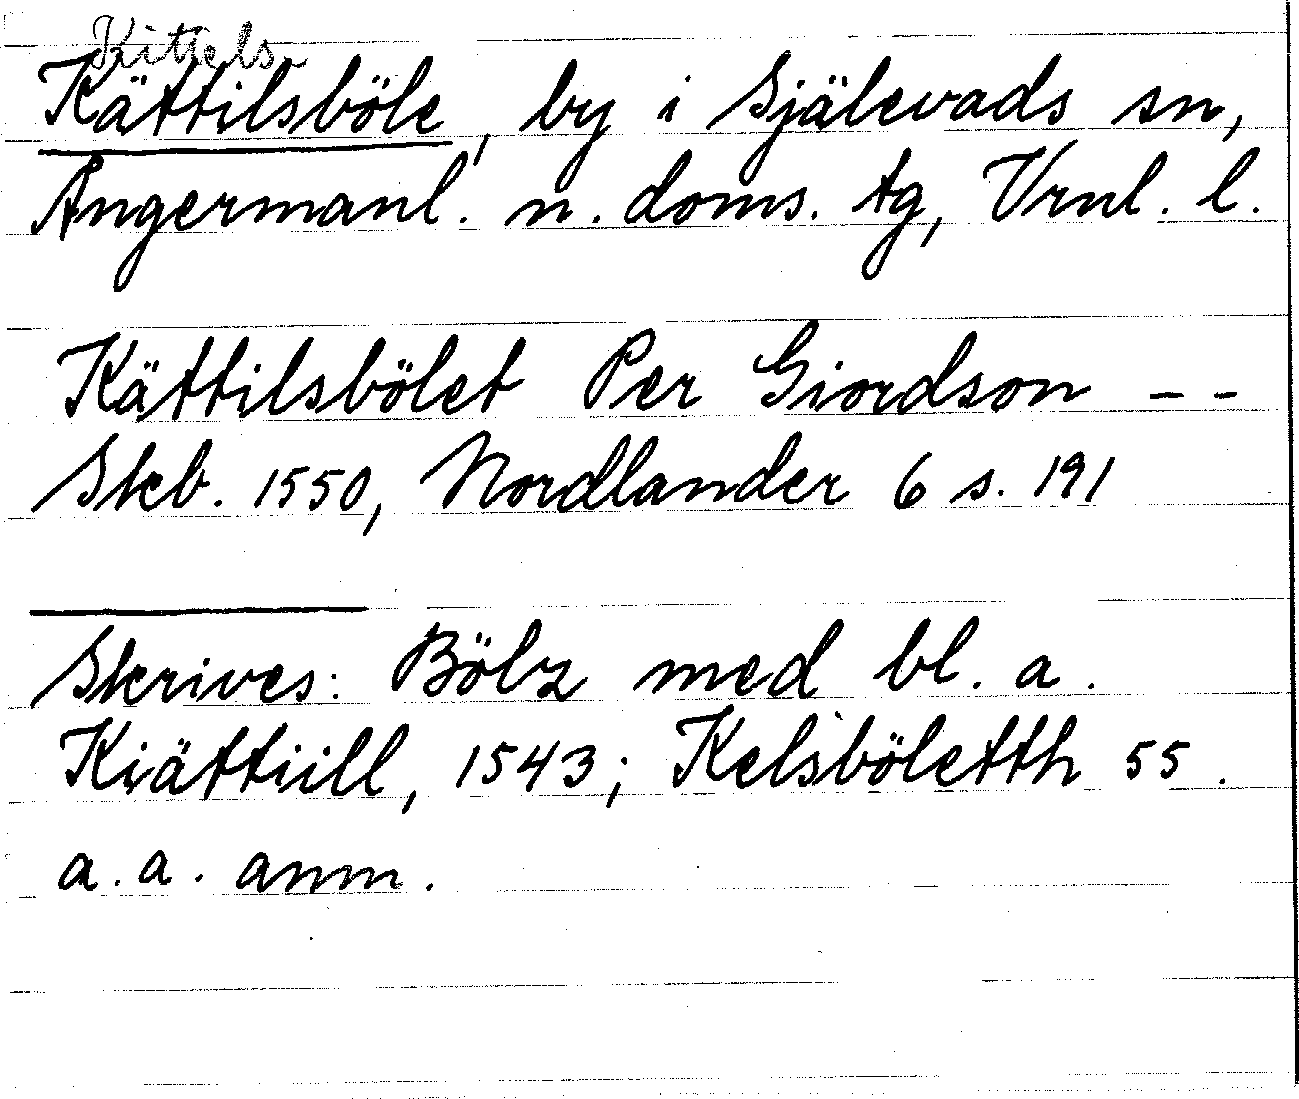 Kittels-
Kättilsböle, by i Själevads sn,
Ångermanl. n. doms. tg, Vrnl. l.
Kättilsbölet Per Giordson - -
Skb. 1550, Nordlander 6 s. 191
Skrives: Bölz med bl. a.
Kiättiill, 1543; Kelsböletth 55.
a. a. anm.